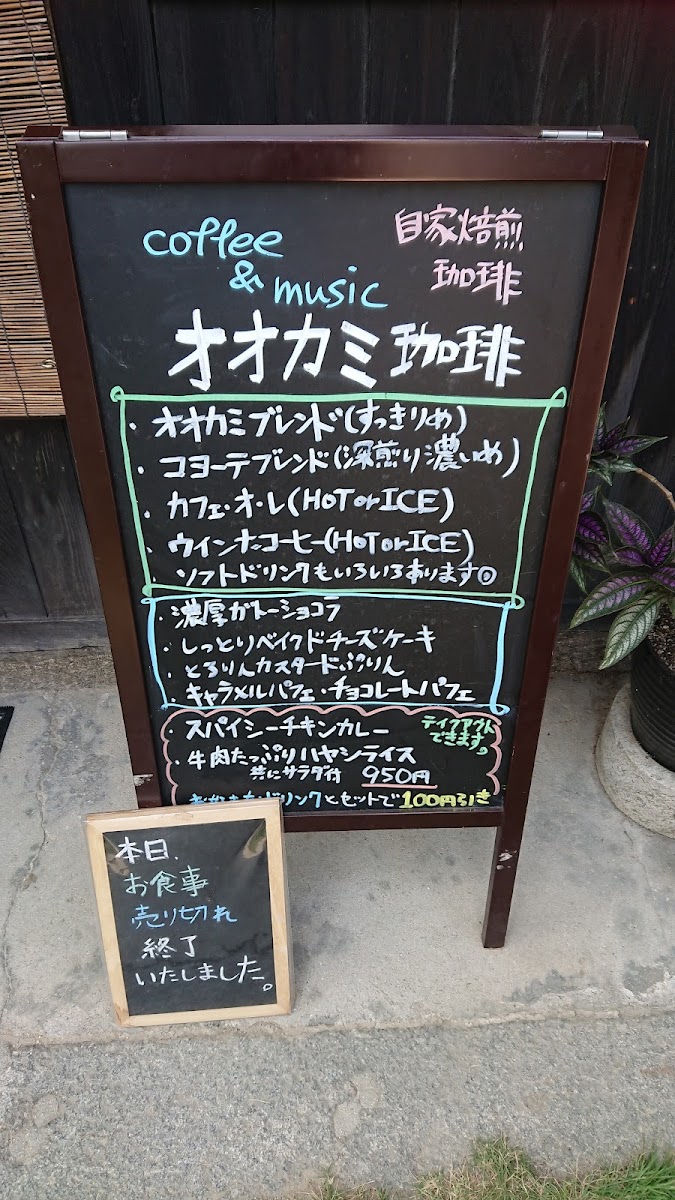 coffee
& music
自家焙煎
珈琲
オオカミ珈琲
・オオカミブレンド(すっきりめ)
・コヨーテブレンド(深煎り濃いめ)
・カフェ・オ・レ(HOT or ICE)
・ウインナーコーヒー(HOT or ICE)
・ソフトドリンクもいろいろあります◎
・濃厚ガトーショコラ
・しっとりベイクドチーズケーキ
・とろりんカスタードぷりん
・キャラメルパフェ・チョコレートパフェ
・スパイシーチキンカレー
テイクアウト
できます。
・牛肉たっぷりハヤシライス
共にサラダ付 950円
ドリンクとセットで100円引き
本日、
お食事
売り切れ
終了
いたしました。